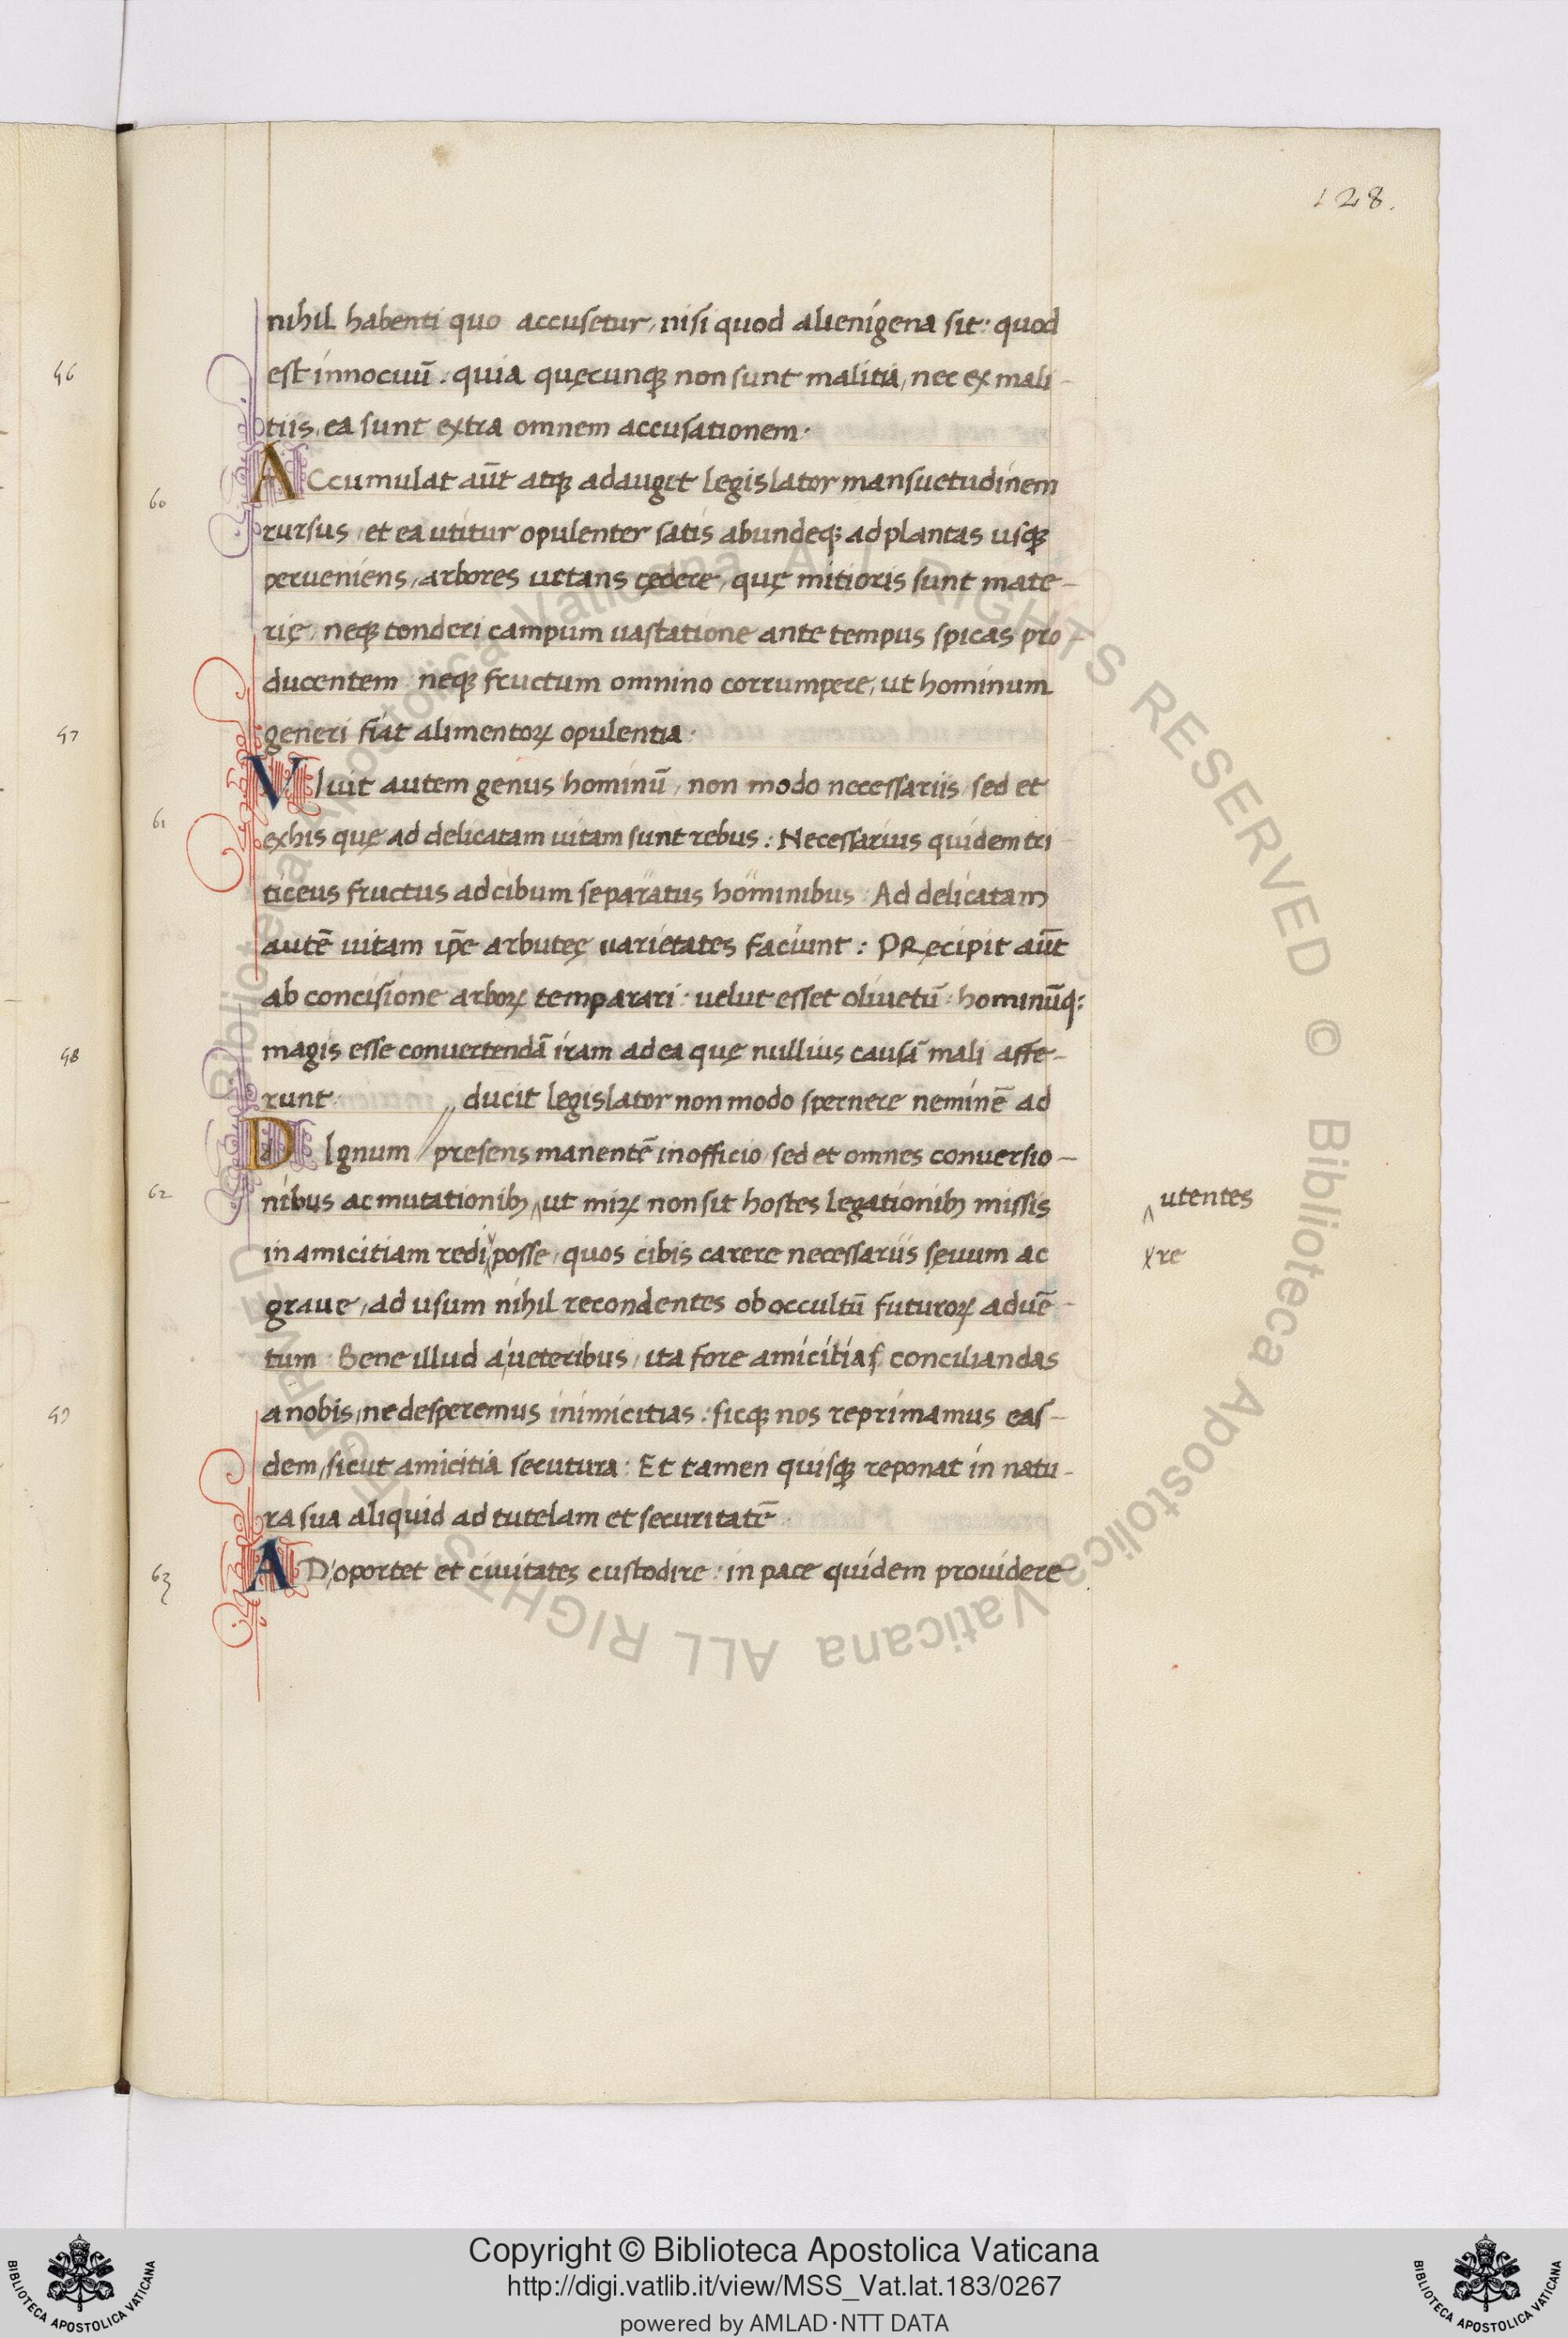 128.
nihil habenti quo accusetur, nisi quod alienigena sit: quod
est innocuū: quia quęcunqꝫ non sunt malitia, nec ex mali-
tiis, ea sunt extra omnem accusationem.
ACcumulat aūt atqꝫ adauget legislator mansuetudinem
rursus, et ea utitur opulenter satis abundeqꝫ ad plantas usqꝫ
perueniens, arbores uetans cędere, quę mitioris sunt mate-
rię, neqꝫ tonderi campum uastatione ante tempus spicas pro-
ducentem: neqꝫ fructum omnino corrumpere, ut hominum
generi fiat alimentoꝝ opulentia.
VIuit autem genus hominū, non modo necessariis, sed et
ex his quę ad delicatam uitam sunt rebus: Necessarius quidem tri
ticeus fructus ad cibum separatus hominibus: Ad delicatam
autē uitam ip̄e arbuteę uarietates faciunt: PRęcipit aūt
ab concisione arboꝝ temparari: uelut esset oliuetū: hominūqꝫ
magis esse conuertendā iram ad ea quę nullius causā mali affe-
runt. // ducit legislator non modo spernere neminē ad
DIgnum // presens manentē in officio, sed et omnes conuersio-
nibus ac mutationibꝫ ‸ ut miꝝ non sit hostes legationibꝫ missis
in amicitiam redi posse, quos cibis carere necessariis sęuum ac
graue, ad usum nihil recondentes ob occultū futuroꝝ aduē-
tum: Bene illud a ueteribus, ita fore amicitias conciliandas
a nobis, ne desperemus inimicitias: sicqꝫ nos reprimamus eas-
dem, sicut amicitia secutura: Et tamen quisqꝫ reponat in natu-
ra sua aliquid ad tutelam et securitatē
AD oportet et ciuitates custodire: in pace quidem prouidere
‸ utentes
re
60
61
62
63
56
57
58
59
Biblioteca Apostolica Vaticana ALL RIGHTS RESERVED © Biblioteca Apostolica Vaticana ALL RIGHTS RESERVED
Copyright © Biblioteca Apostolica Vaticana
http://digi.vatlib.it/view/MSS_Vat.lat.183/0267
powered by AMLAD·NTT DATA
BIBLIOTECA APOSTOLICA VATICANA
BIBLIOTECA APOSTOLICA VATICANA